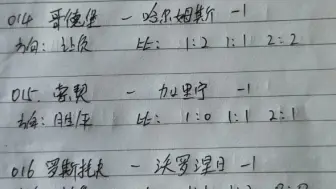 014 哥德堡 - 哈尔姆斯 -1
方向: 让负 比: 1:2 1:1 2:2
015. 索契 - 加里宁 -1
方向: 胜/平 比: 1:0 1:1 2:1
016 罗斯托夫 - 沃罗涅日 -1